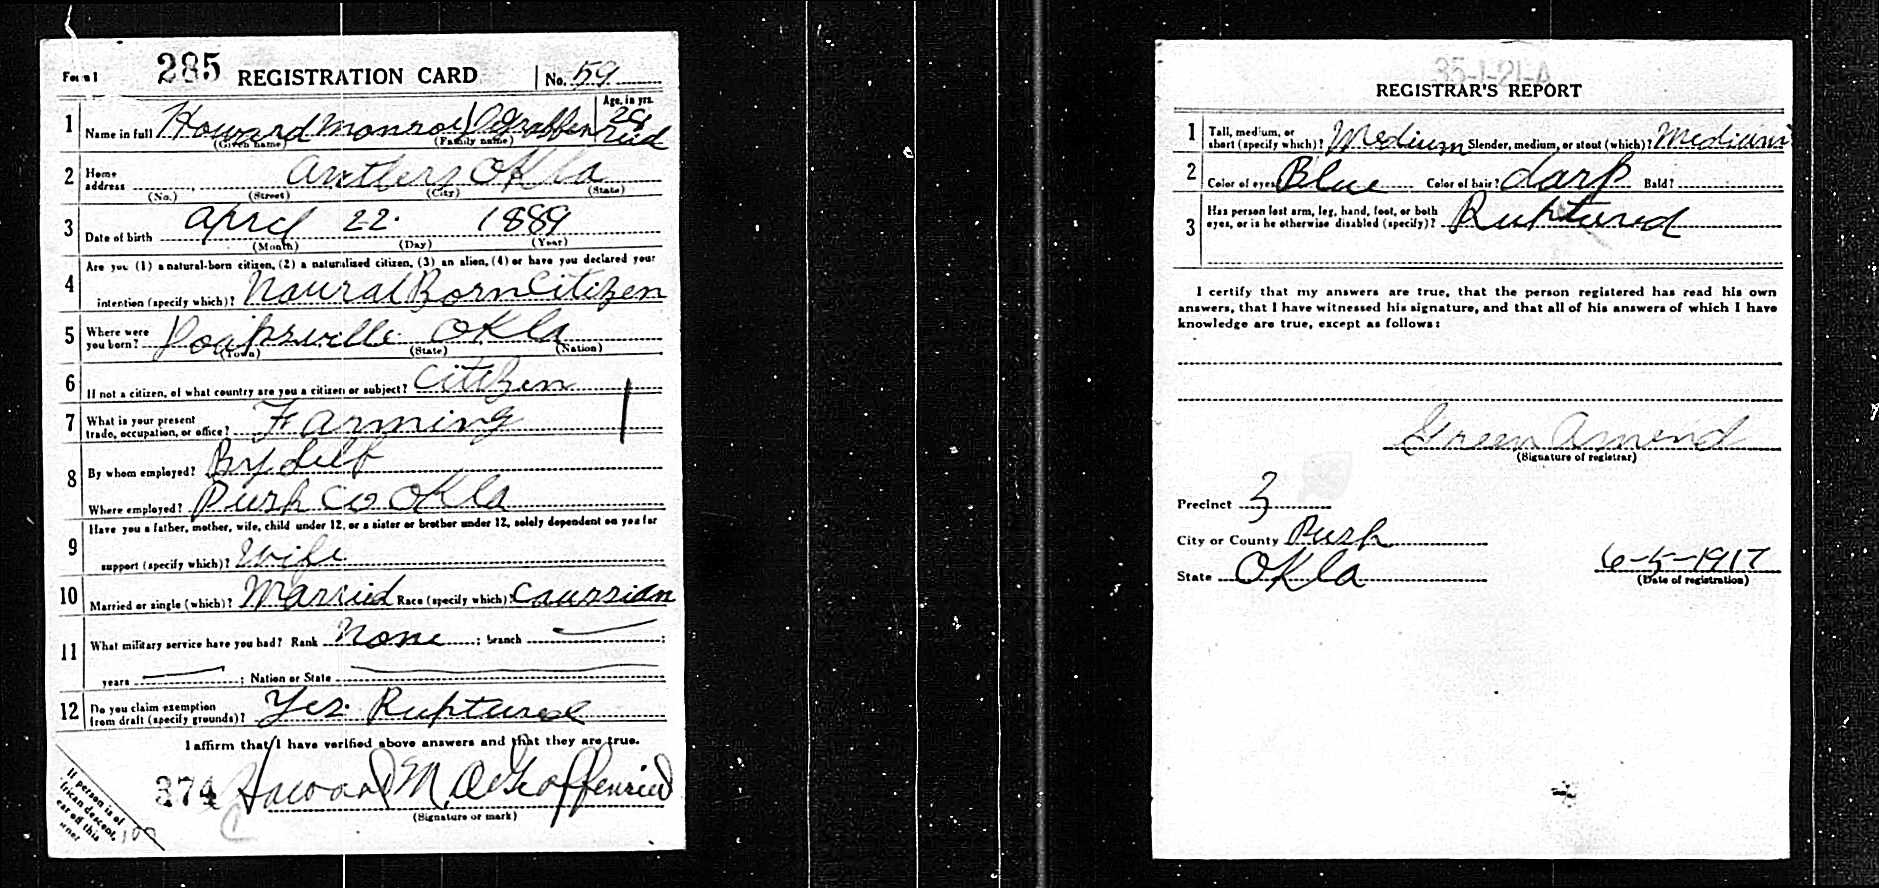 Form 1 285 REGISTRATION CARD No. 59
1 Name in full Howard Monroe DGraffenried Age, in yrs. 28
(Given name) (Family name)
2 Home address Antlers Okla
(No.) (Street) (City) (State)
3 Date of birth April 22 1889
(Month) (Day) (Year)
4 Are you (1) a natural-born citizen, (2) a naturalized citizen, (3) an alien, (4) or have you declared your
intention (specify which)? Naural Born Citizen
5 Where were you born? Doaksville Okla
(Town) (State) (Nation)
6 If not a citizen, of what country are you a citizen or subject? Citizen
7 What is your present trade, occupation, or office? Farming
8 By whom employed? By Self
Where employed? Push Co Okla
9 Have you a father, mother, wife, child under 12, or a sister or brother under 12, solely dependent on you for
support (specify which)? Wife
10 Married or single (which)? Married Race (specify which)? Caussian
11 What military service have you had? Rank None ; branch ;
years ; Nation or State
12 Do you claim exemption from draft (specify grounds)? Yes. Ruptured
I affirm that I have verified above answers and that they are true.
374 Howard M. DeGraffenried
(Signature or mark)
If person is of
African descent,
tear off this
corner
35-1-21-A
REGISTRAR'S REPORT
1 Tall, medium, or short (specify which)? Medium Slender, medium, or stout (which)? Medium
2 Color of eyes? Blue Color of hair? dark Bald?
3 Has person lost arm, leg, hand, foot, or both
eyes, or is he otherwise disabled (specify)? Ruptured
I certify that my answers are true, that the person registered has read his own
answers, that I have witnessed his signature, and that all of his answers of which I have
knowledge are true, except as follows:
Green Amend
(Signature of registrar)
Precinct 3
City or County Push
State Okla
6-5-1917
(Date of registration)